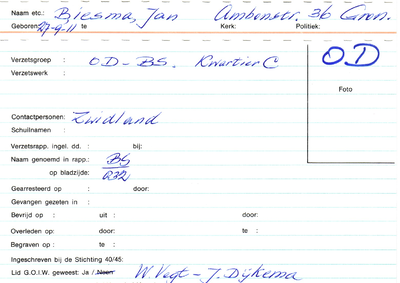 Naam etc.: Biesma, Jan Ambonstr. 36 Gron.
Geboren: 27-9-11 te Kerk: Politiek:
Verzetsgroep : OD - BS. Kwartier C OD
Verzetswerk :
Foto
Contactpersonen: Zuidland
Schuilnamen :
Verzetsrapp. ingel. dd. : bij:
Naam genoemd in rapp.: BS
op bladzijde: 232
Gearresteerd op : door:
Gevangen gezeten in :
Bevrijd op : uit : door:
Overleden op: door: te :
Begraven op : te :
Ingeschreven bij de Stichting 40/45:
Lid G.O.I.W. geweest: Ja / Neen W. Vegt - J. Dijkema